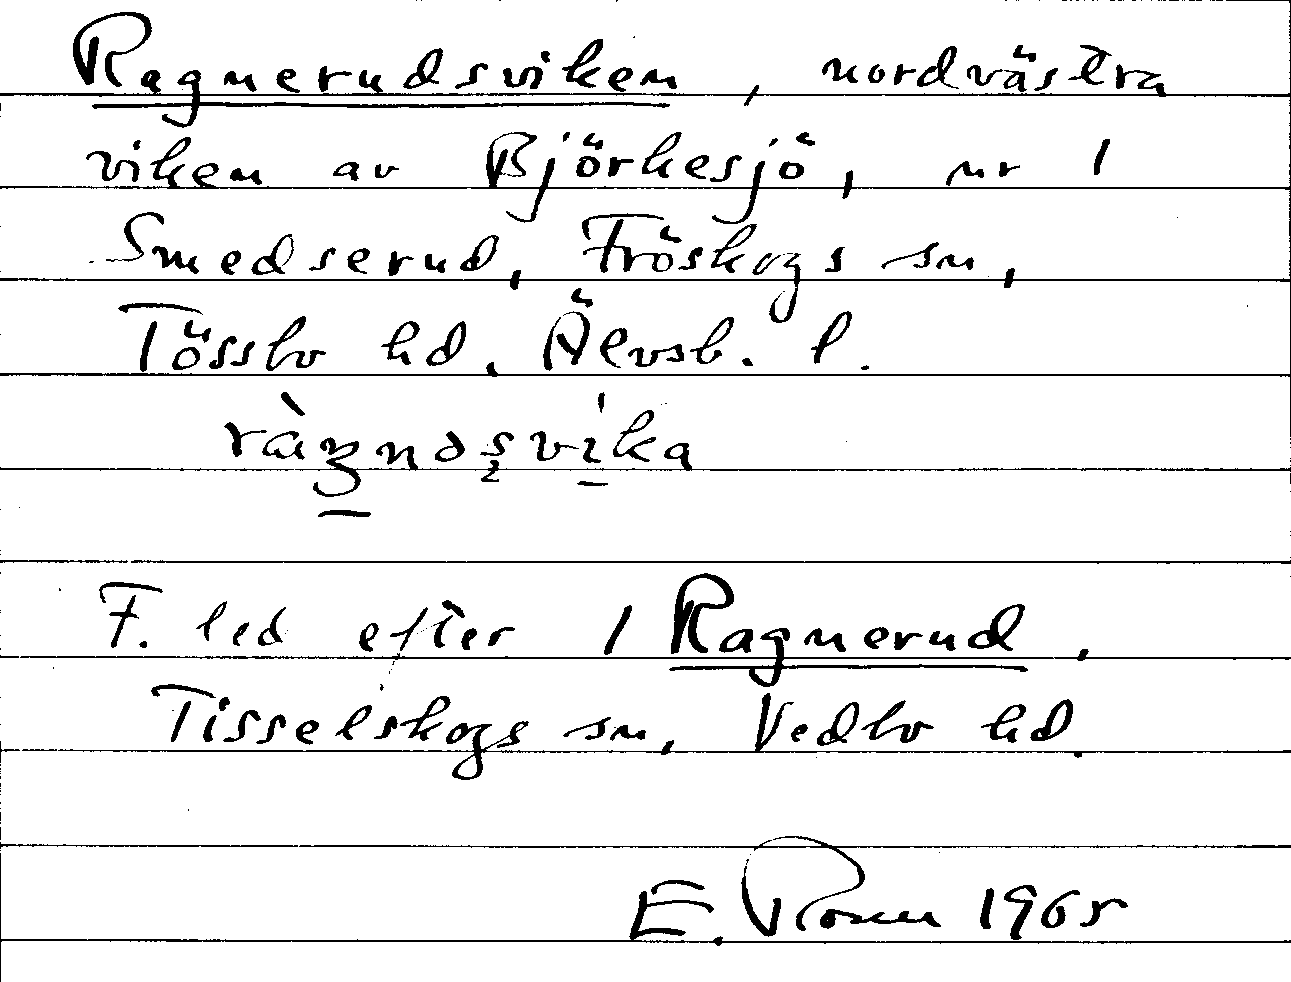 Ragnerudsviken, nordvästra
viken av Björkesjö, nr 1
Smedserud, Fröskogs sn,
Tössbo hd. Älvsb. l.
F. led efter 1 Ragnerud,
Tisselskogs sn, Vedbo hd.
E. Rosen 1965